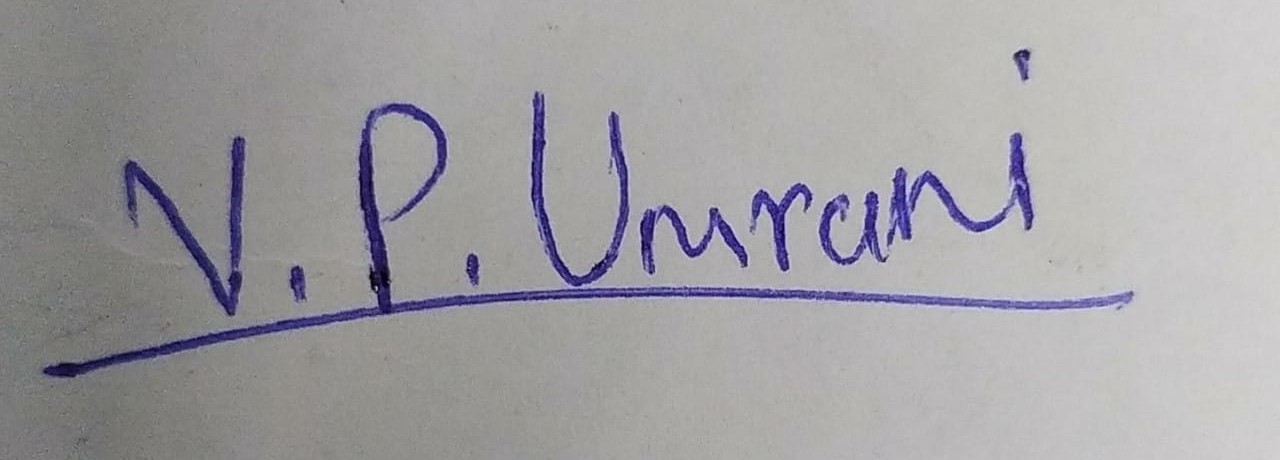 V. P. Umrani